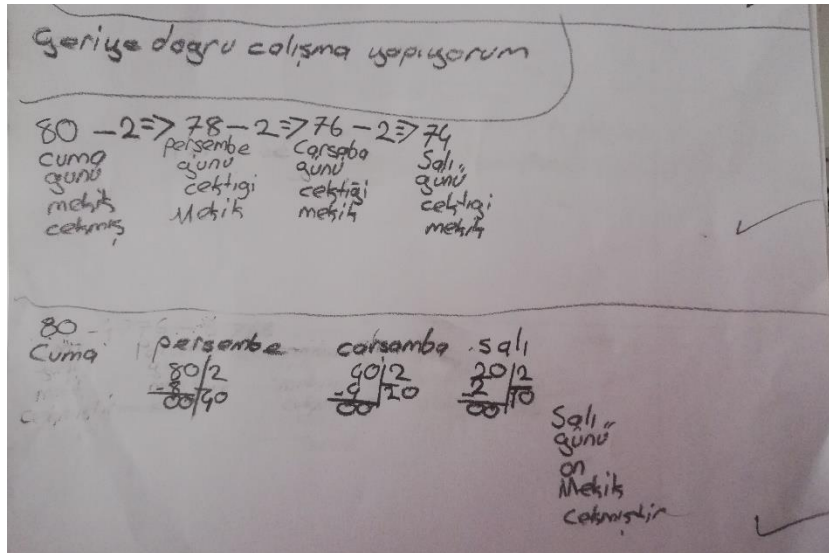 Geriye dogru calışma yapıyorum
80 - 2 => 78 - 2 => 76 - 2 => 74
cuma günü mekik cekmiş
persembe günü cektigi Mekik
Carsaba günü cektiği mekik
Salı günü cektigi mekik
80
Cuma persembe carsamba salı
80/2 40/2 20/2
-8 40 -4 20 -2 10
00 00 00
Salı
günü
on
Mekik
cekmiştir